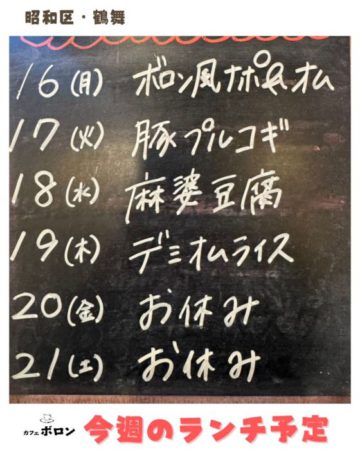 昭和区・鶴舞
16(月) ボロン風ナポ&オム
17(火) 豚プルコギ
18(水) 麻婆豆腐
19(木) デミオムライス
20(金) お休み
21(土) お休み
カフェ ボロン 今週のランチ予定